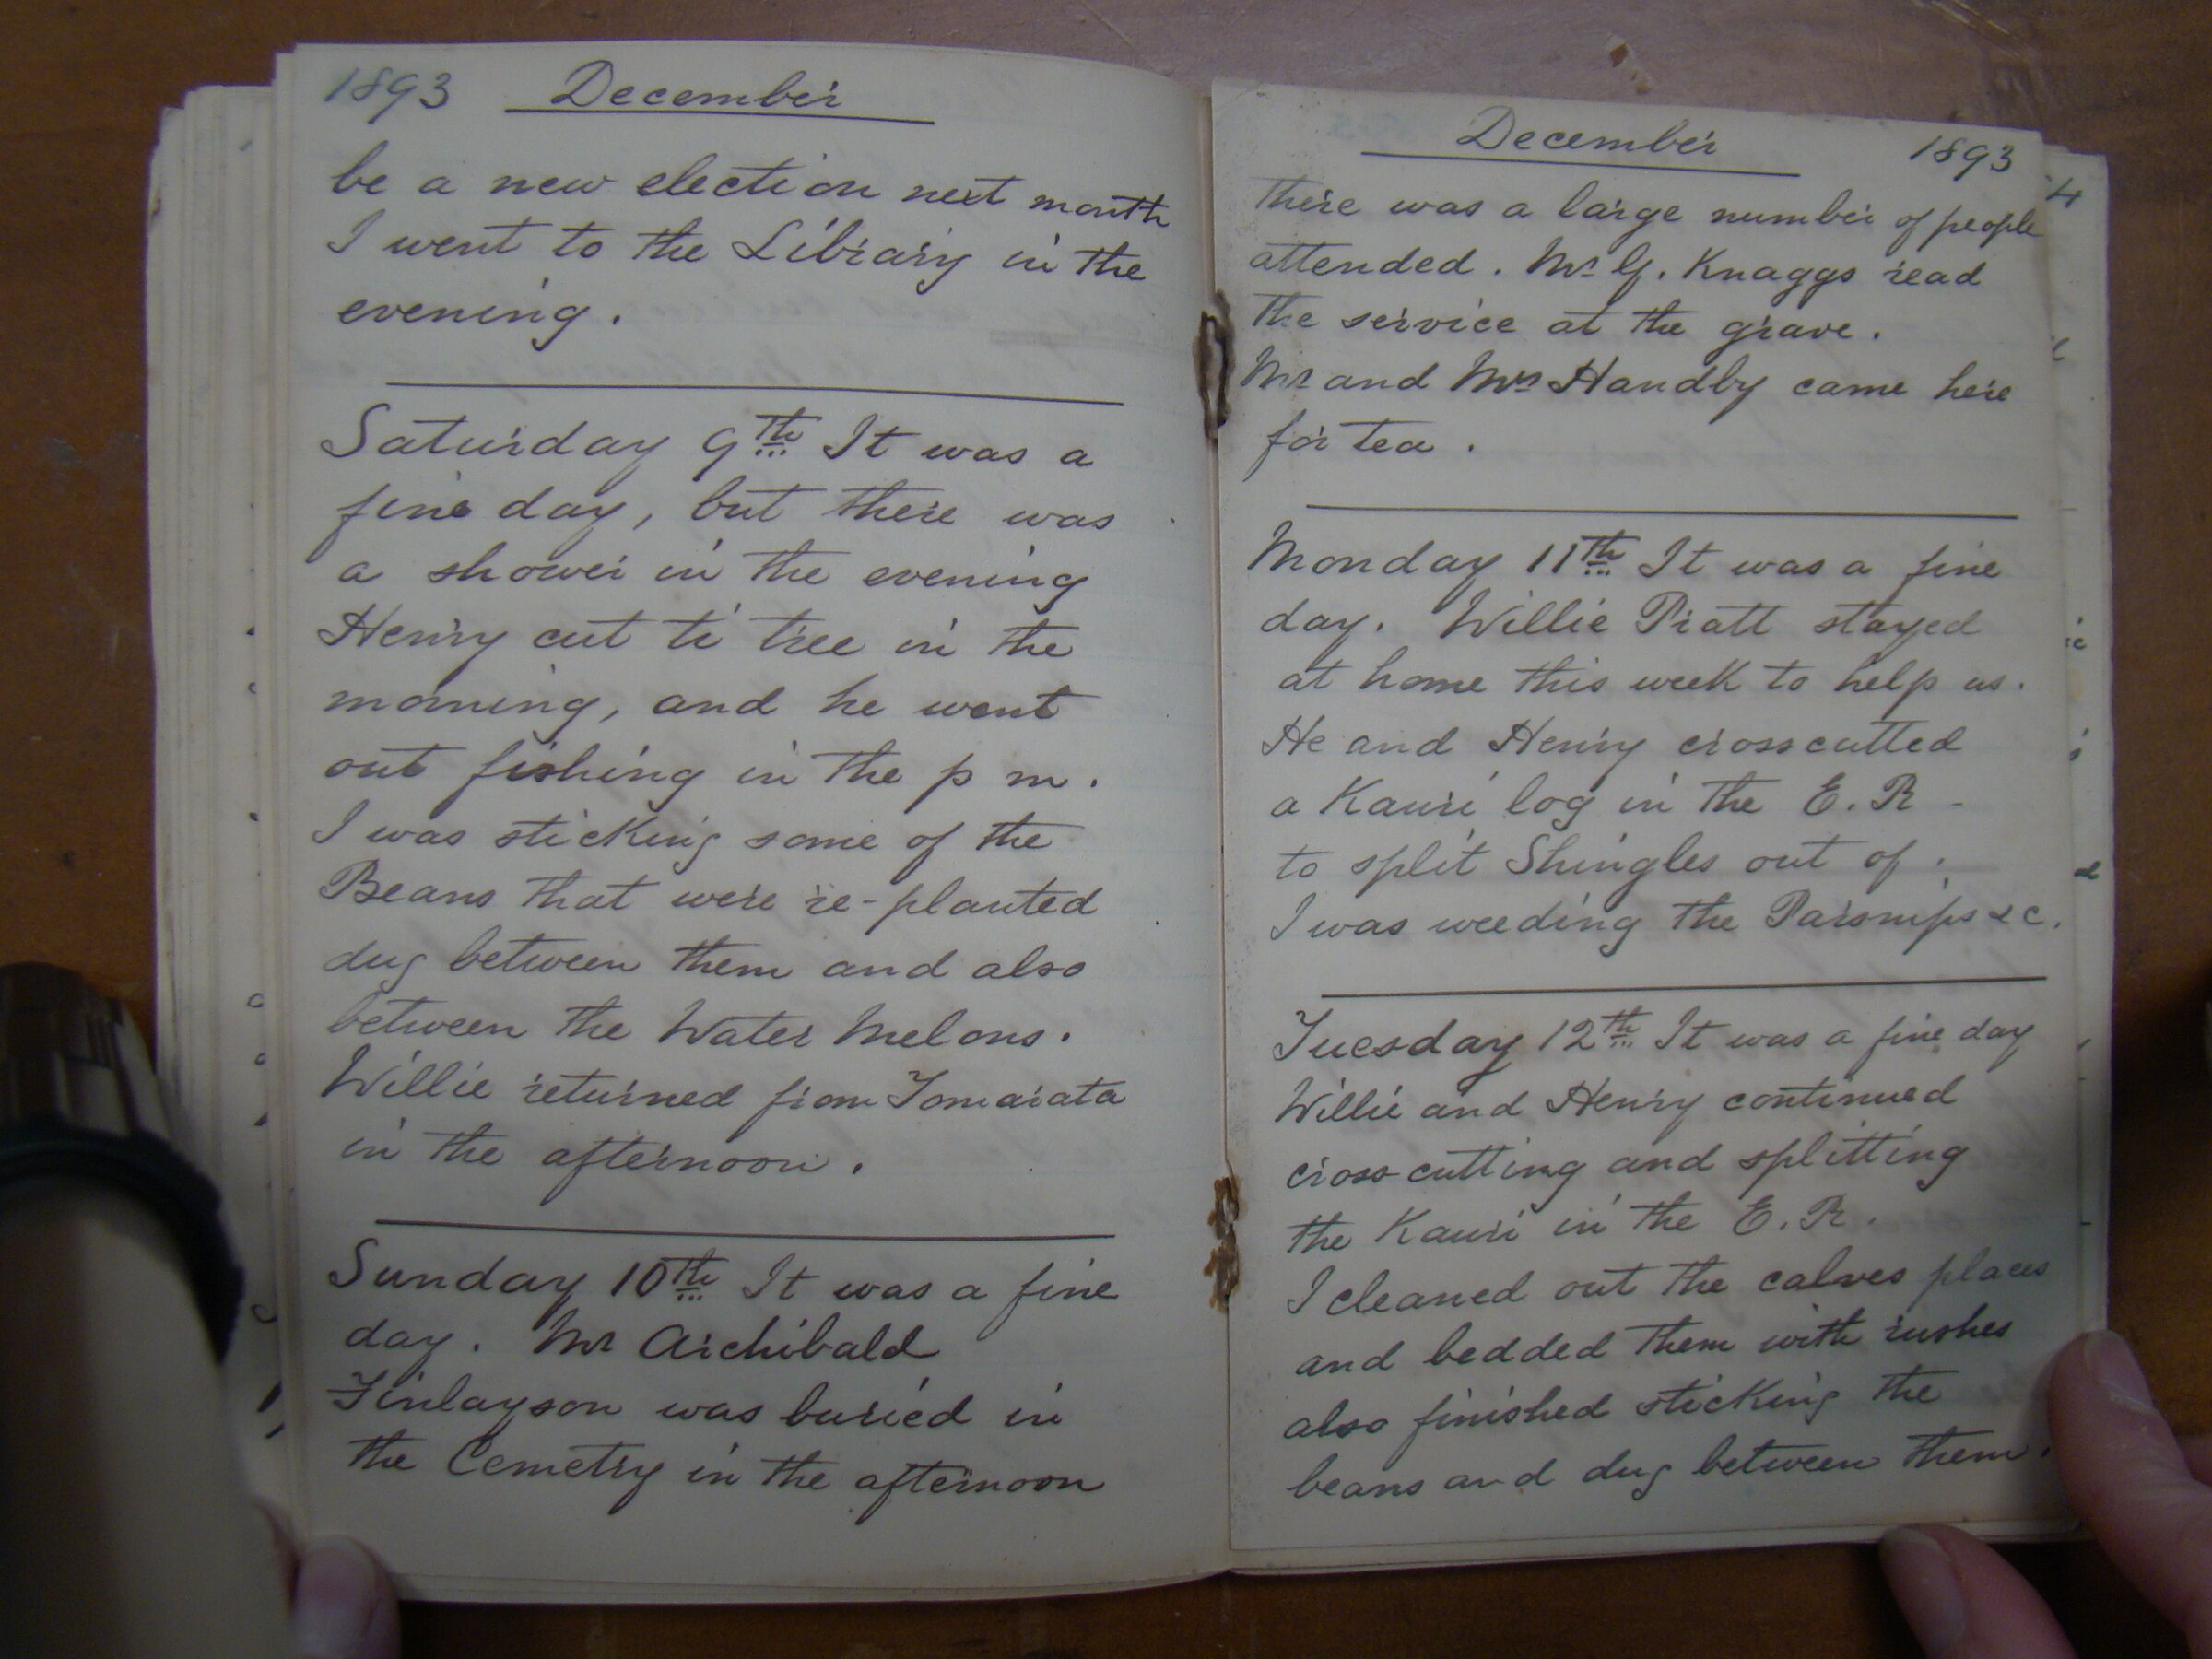 1893 December
be a new election next month
I went to the Library in the
evening.
Saturday 9th It was a
fine day, but there was
a shower in the evening
Henry cut ti tree in the
morning, and he went
out fishing in the p m.
I was sticking some of the
Beans that were re-planted
dug between them and also
between the Water Melons.
Willie returned from Tomarata
in the afternoon.
Sunday 10th It was a fine
day. Mr Archibald
Finlayson was buried in
the Cemetry in the afternoon
December 1893
there was a large number of people
attended. Mr G. Knaggs read
the service at the grave.
Mr and Mrs Handby came here
for tea.
Monday 11th It was a fine
day. Willie Pratt stayed
at home this week to help us.
He and Henry crosscutted
a Kauri log in the E. R
to split Shingles out of.
I was weeding the Parsnips &c.
Tuesday 12th It was a fine day
Willie and Henry continued
cross cutting and splitting
the Kauri in the E. R.
I cleaned out the calves places
and bedded them with rushes
also finished sticking the
beans and dug between them.